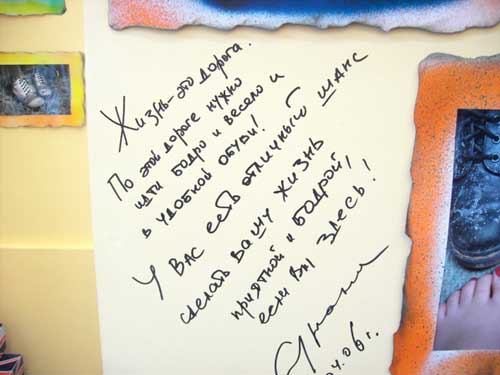 Жизнь-это дорога.
По этой дороге нужно
идти бодро и весело и
в удобной обуви!
У вас есть отличный шанс
сделать вашу жизнь
приятной и бодрой,
если вы здесь!
04.06г.